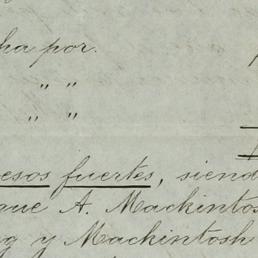 ha por.
" "
" "
esos fuertes, siend
que A. Mackintos
g y Mackintosh